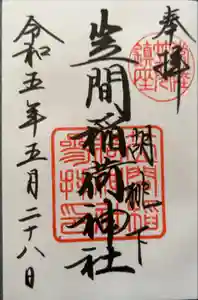 奉拝
胡桃下
笠間稲荷神社
令和五年五月二十八日